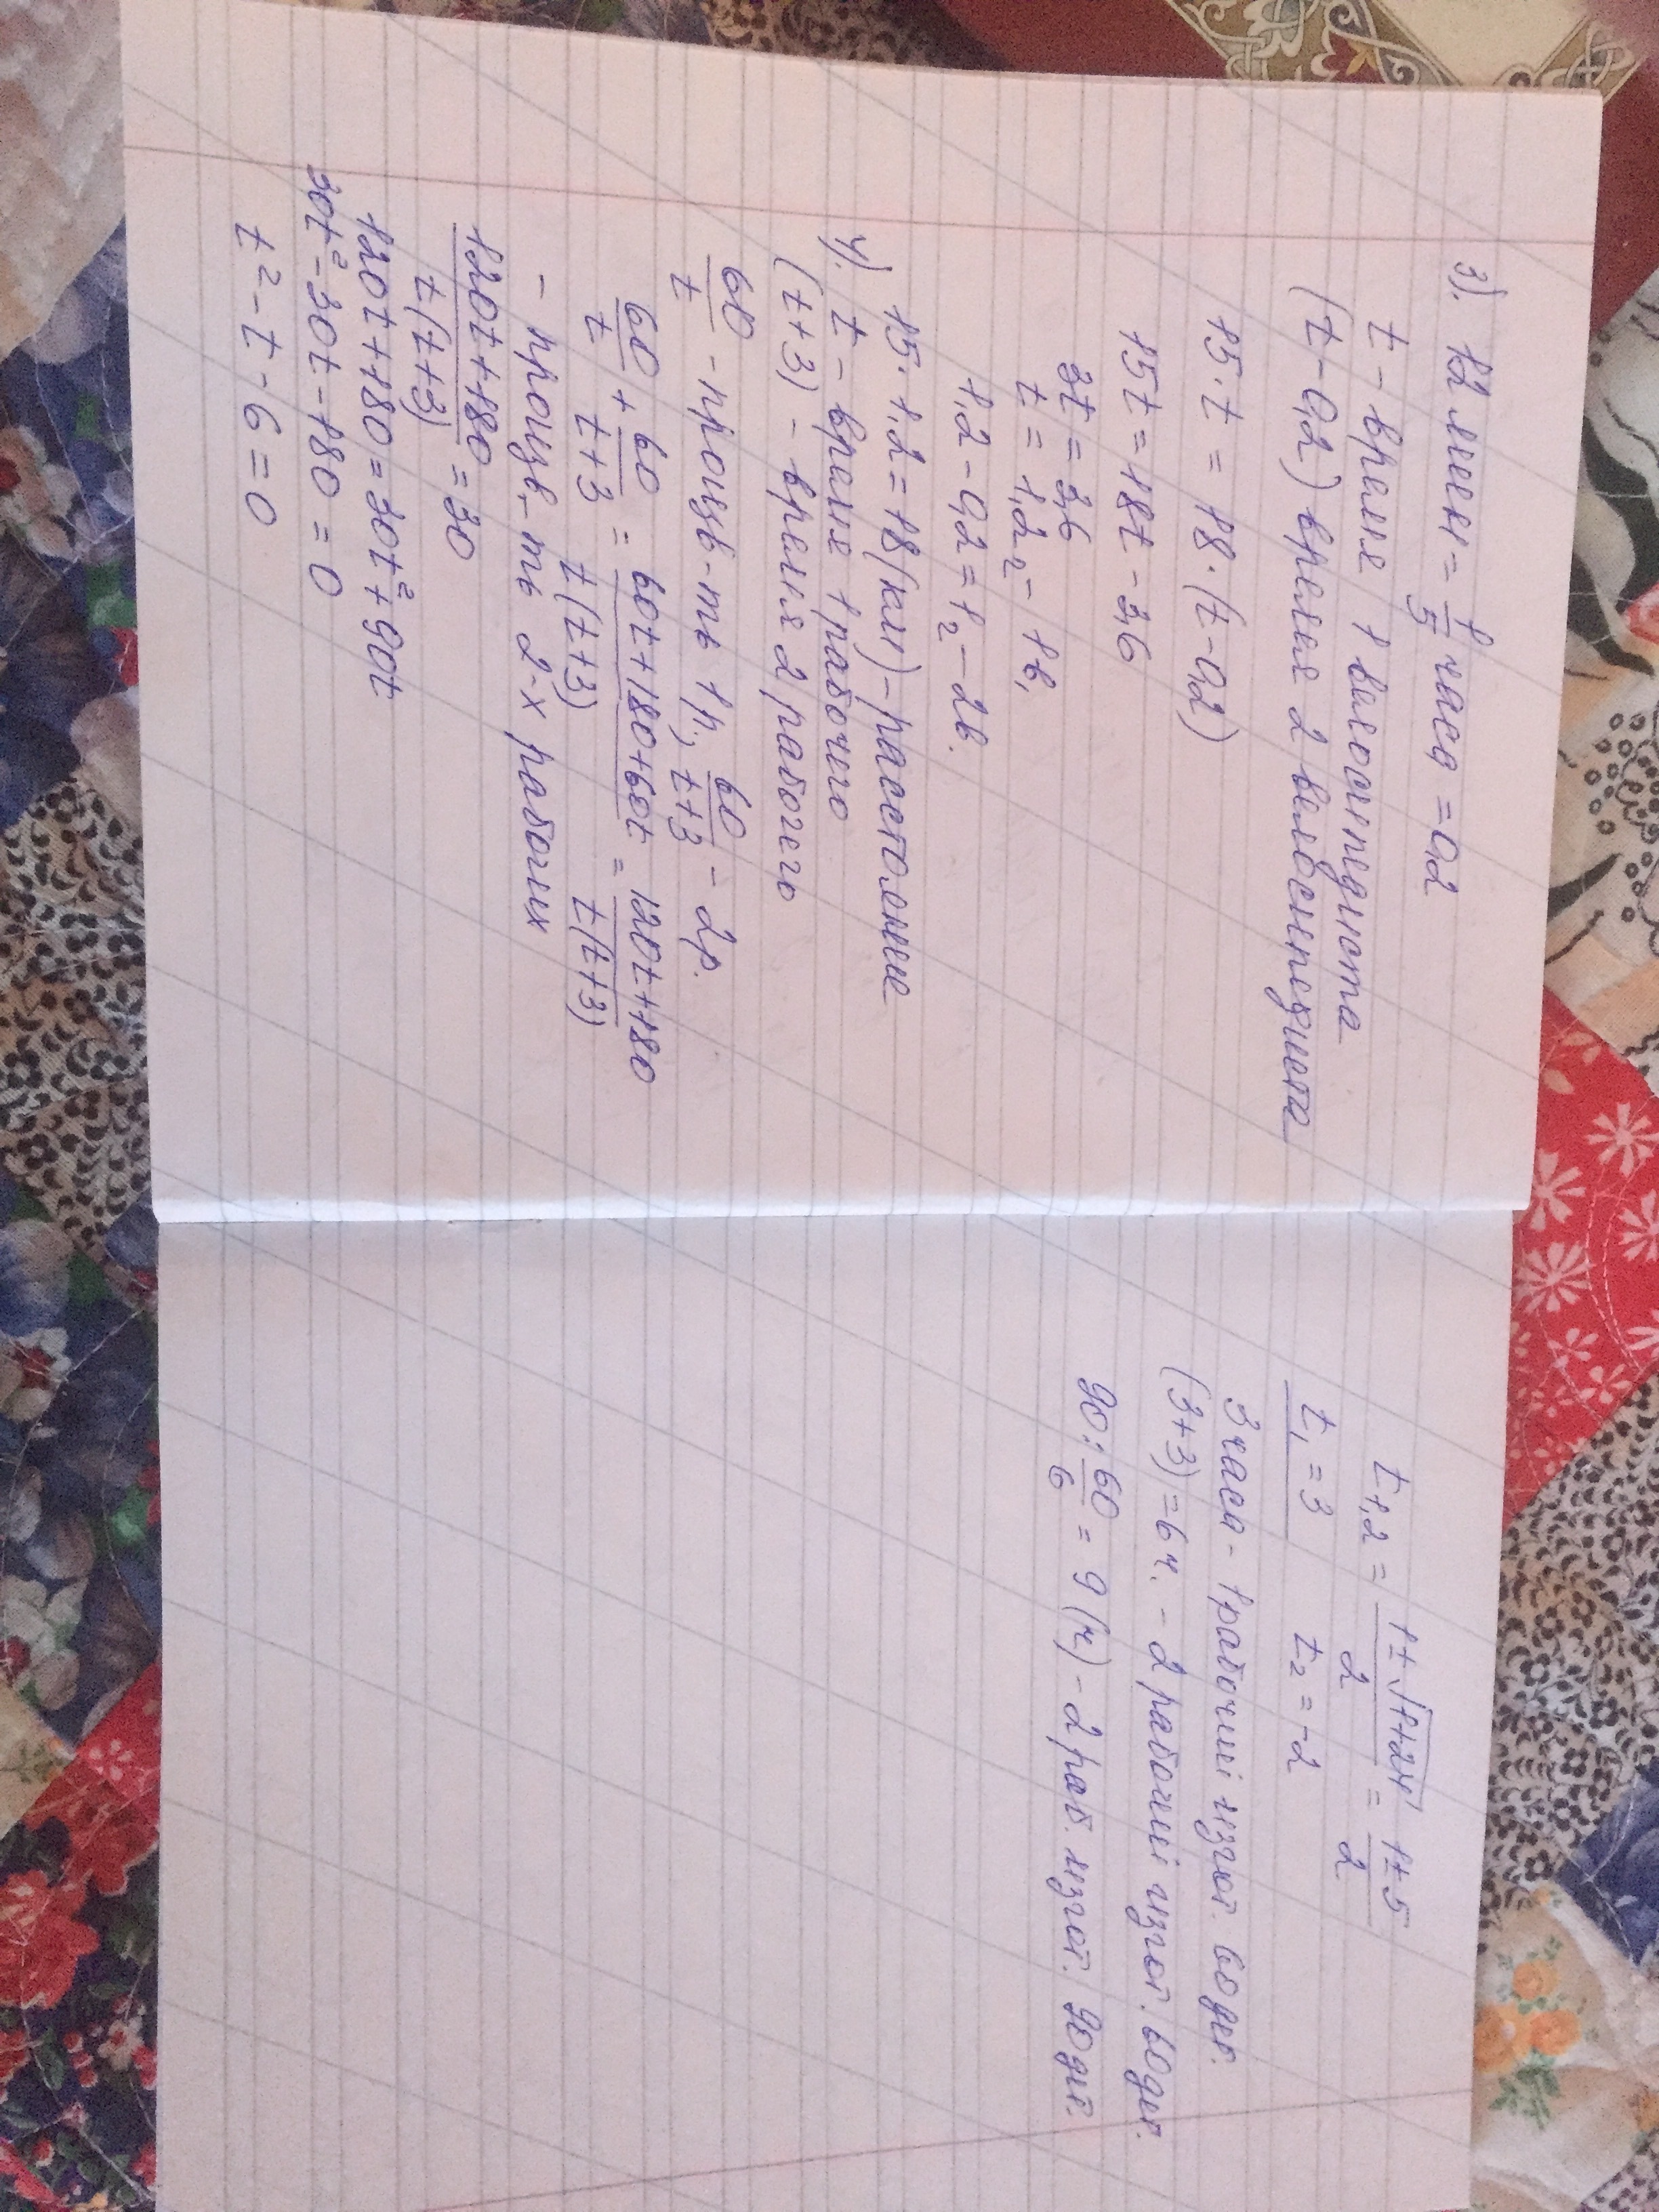 3). 12 мин = 1/5 часа = 0,2
t – время 1 велосипедиста
(t – 0,2) время 2 велосипедиста
15 · t = 18 · (t – 0,2)
15t = 18t – 3,6
3t = 3,6
t = 1,2 ч – 1в,
1,2 – 0,2 = 1 ч – 2в.
15 · 1,2 = 18 (км) – расстояние
4). t – время 1 рабочего
(t + 3) – время 2 рабочего
60/t – произв-ть 1р., 60/(t+3) – 2р.
60/t + 60/(t+3) = (60t + 180 + 60t)/(t(t+3)) = (120t + 180)/(t(t+3))
– произв-ть 2-х рабочих
(120t + 180)/(t(t+3)) = 30
120t + 180 = 30t² + 90t
30t² – 30t – 180 = 0
t² – t – 6 = 0
t1,2 = (1 ± √(1+24))/2 = (1 ± 5)/2
t₁ = 3 t₂ = –2
3 часа – 1 рабочий изгот. 60 дет.
(3+3) = 6 ч. – 2 рабочий изгот. 60 дет.
90 : 60/6 = 9 (ч) – 2 раб. изгот. 90 дет.